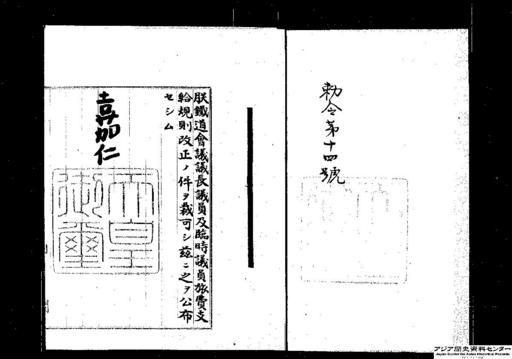 勅令第十四號
朕鐵道會議議長議員及臨時議員旅費支
給規則改正ノ件ヲ裁可シ茲ニ之ヲ公布
セシム
嘉仁
天皇
御璽
アジア歴史資料センター
Japan Center for Asian Historical Records